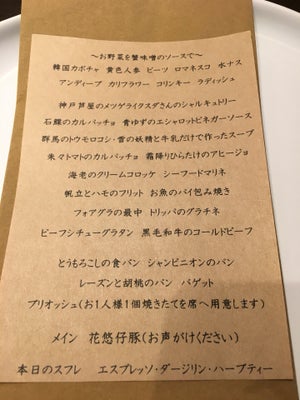 ～お野菜を蟹味噌のソースで～
韓国カボチャ 黄色人参 ビーツ ロマネスコ 水ナス
アンディーブ カリフラワー コリンキー ラディッシュ
神戸芦屋のメツゲライクスダさんのシャルキュトリー
石鯛のカルパッチョ 青ゆずのエシャロットビネガーソース
群馬のトウモロコシ・雷の妖精と牛乳だけで作ったスープ
朱々トマトのカルパッチョ 霜降りひらたけのアヒージョ
海老のクリームコロッケ シーフードマリネ
帆立とハモのフリット お魚のパイ包み焼き
フォアグラの最中 トリッパのグラチネ
ビーフシチューグラタン 黒毛和牛のコールドビーフ
とうもろこしの食パン シャンピニオンのパン
レーズンと胡桃のパン バゲット
ブリオッシュ(お1人様1個焼きたてを席へ用意します)
メイン 花悠仔豚(お声がけください)
本日のスフレ エスプレッソ・ダージリン・ハーブティー